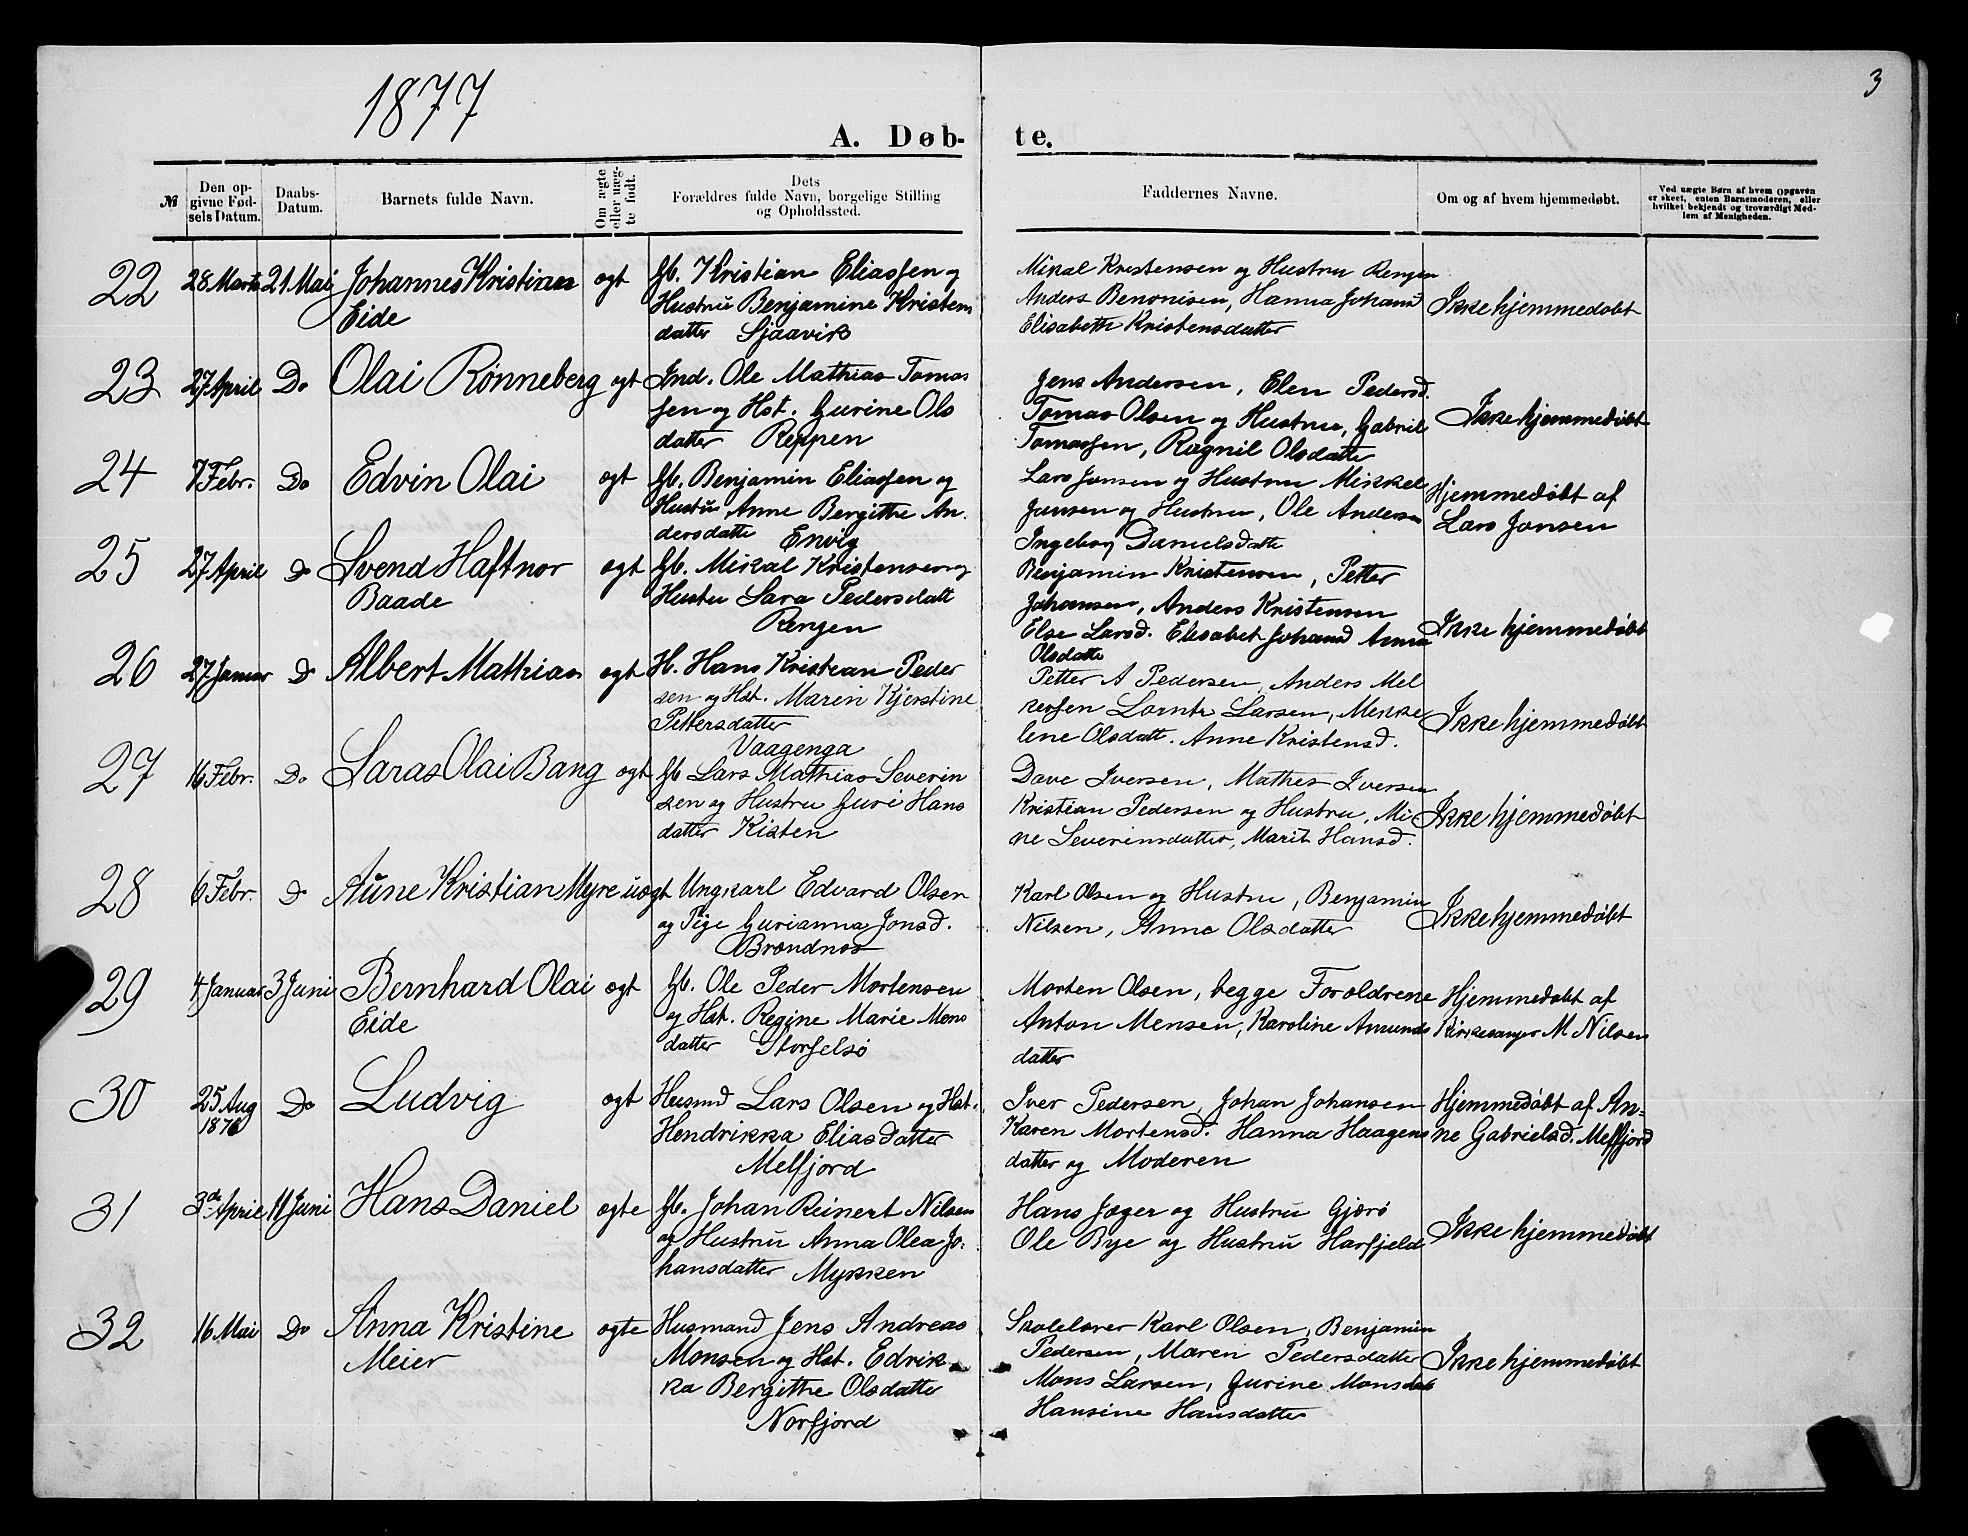 1877
3
A. Døb-
te.
№
Den op-
givne Fød-
sels Datum.
Daabs-
Datum.
Barnets fulde Navn.
Om ægte
eller uæg-
te født.
Dets
Forældres fulde Navn, borgelige Stilling
og Opholdssted.
Faddernes Navne.
Om og af hvem hjemmedøbt.
Ved uægte Børn af hvem Opgaven
er skeet, enten Barnemoderen, eller
hvilket bekjendt og troværdigt Med-
lem af Menigheden.
22
28 Marts
21 Mai
Johannes Kristian
Eide
ogt
Gb. Kristian Eliassen og
Hustru Benjamine Kristens
datter Sjaavik
Mikal Kristensen og Hustru Rengen
Anders Benonisen, Hanna Johansd
Elisabeth Kristensdatter
Ikke hjemmedøbt
23
27 April
Do
Olai Rønneberg
ogt
Ind. Ole Mathias Tomas
sen og Hst. Gurine Ols
datter Reppen
Jens Andersen, Elen Pedersd.
Tomas Olsen og Hustru, Gabriel
Tomassen, Ragnil Olsdatter
Ikke hjemmedøbt
24
7 Febr.
Do
Edvin Olai
ogt
Gb. Benjamin Eliassen og
Hustru Anne Bergitthe An-
dersdatte Envig
Lars Jonsen og Hustru Mikkel
Jansen og Hustru, Ole Andersen
Ingeborg Danielsdatte
Hjemmedøbt af
Lars Jonsen
25
27 April
Do
Svend Haftnor
Baade
ogt
Gb. Mikal Kristensen og
Hustru Sara Pedersdatt
Rengen
Benjamin Kristensen, Petter
Johansen, Anders Kristensen
Else Larsd. Elisabet Johansd Anna
Olsdatte
Ikke hjemmedøbt
26
27 Januar
Do
Albert Mathias
ogt
H. Hans Kristian Peder
sen og Hst. Maren Kjerstine
Pettersdatter
Vaagenga
Petter A Pedersen, Anders Mel
kersen Lornts Larsen, Mekke
lene Olsdatt. Anne Kristensd.
Ikke hjemmedøbt
27
16 Febr.
Do
Laras Olai Bang
ogt
Gb Lars Mathias Severin
sen og Hustru Guri Hans
datter Kisten
Dave Iversen, Mathes Iversen
Kristian Pedersen og Hustru, Mi
ne Severinsdatter, Marit Hansd.
Ikke hjemmedøbt
28
6 Febr.
Do
Aune Kristian Myre
uogt
Ungkarl Edvard Olsen
og Pige Gurianna Jonsd.
Brændnes
Karl Olsen og Hustru, Benjamin
Nilsen, Anne Olsdatter
Ikke hjemmedøbt
29
4 Januar
3 Juni
Bernhard Olai
Eide
ogt
Gb. Ole Peder Mortensen
og Hst. Regine Marie Mons
datter Storselsø
Morten Olsen, begge Foroldrene
Anton Mensen, Karoline Amunds
datter
Hjemmedøbt af
Kirkesanger M Nilsen
30
25 Aug
1876
Do
Ludvig
ogt
Husmd Lars Olsen og Hst.
Hendrikka Eliasdatter
Melfjord
Iver Pedersen, Johan Johansen
Karen Mortensd. Hanna Haagens
datter og Moderen
Hjemmedøbt af An-
ne Gabrielsd. Melfjord
31
3de April
11 Juni
Hans Daniel
ogte
Gb. Johan Reinert Nilsen
og Hustru Anna Olea Jo-
hansdatter Mykken
Hans Jæger og Hustru Gjerø
Ole Bye og Hustru Harfjeld
Ikke hjemmedøbt
32
16 Mai
Do
Anna Kristine
Meier
ogte
Husmand Jens Andreas
Monsen og Hst. Edrik
ka Bergitthe Olsdatte
Norfjord
Skolelærer Karl Olsen, Benjamin
Pedersen, Maren Pedersdatter
Mons Larsen, Gurine Monsdat
Hansine Hansdatter
Ikke hjemmedøbt